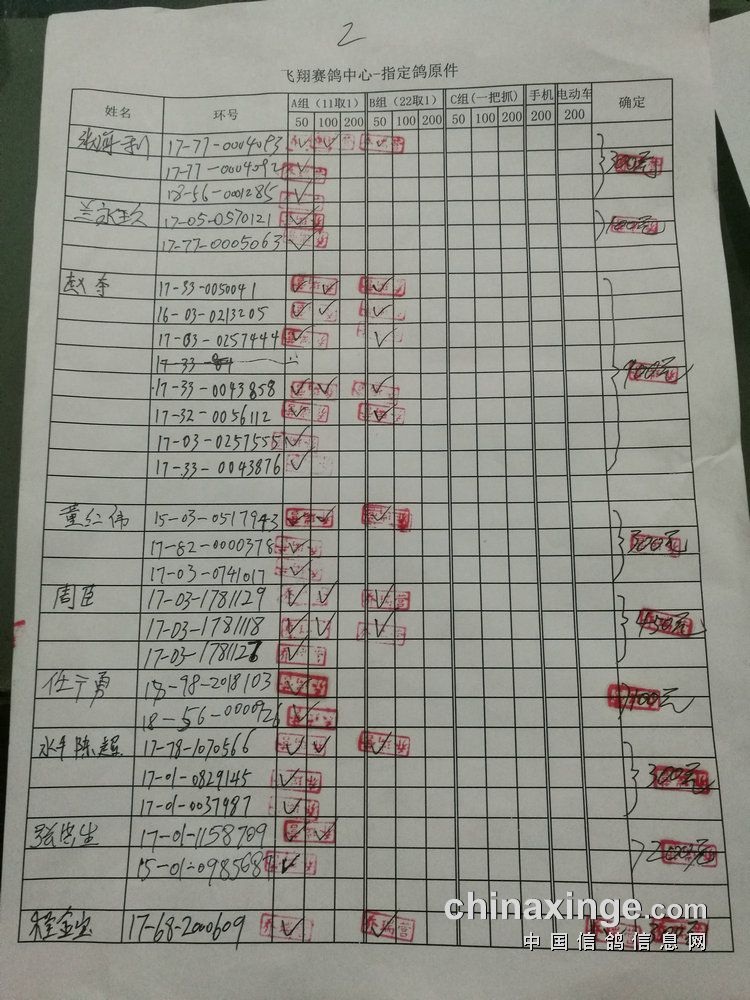 2
飞翔赛鸽中心-指定鸽原件
姓名 环号 A组（11取1） B组（22取1） C组（一把抓） 手机 电动车 确定
50 100 200 50 100 200 50 100 200 200 200
17-77-0004093 ✓ ✓ ✓
17-77-0004092 ✓ 300元
18-56-0001285 ✓
兰永玖 17-05-0570121 ✓ 100元
17-77-0005063 ✓
赵李 17-33-0050041 ✓ ✓ ✓
16-03-0213205 ✓ ✓ ✓
17-03-0257444 ✓ ✓
17-33
17-33-0043858 ✓ ✓ ✓ 900元
17-32-0056112 ✓ ✓
17-03-0257555 ✓
17-33-0043876 ✓
董仁伟 15-03-0517943 ✓ ✓ ✓
17-02-0000378 ✓ 300元
17-03-0741017 ✓
周臣 17-03-1781129 ✓ ✓ ✓
17-03-1781118 ✓ ✓ ✓ 450元
17-03-1781127 ✓
任宁勇 18-98-2018103 ✓ 100元
18-56-0000926 ✓
水年陈超 17-78-1070566 ✓ ✓ ✓
17-01-0829145 ✓ 300元
17-01-0037987 ✓
张忠生 17-01-1158709 ✓ ✓
15-01-098568 ✓ 200元
程金宝 17-68-2000609 ✓ ✓
chinaxinge.com
中国信鸽信息网